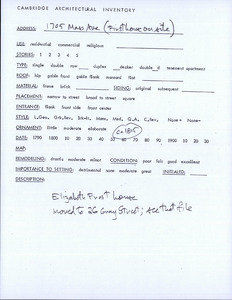 CAMBRIDGE ARCHITECTURAL INVENTORY
ADDRESS: 1705 Mass Ave (First house on site)
USE: residential commercial religious
STORIES: 1 2 3 4 5
TYPE: single double row duplex decker double d tenement apartment
ROOF: hip gable front gable flank mansard flat
MATERIAL: frame brick SIDING: original subsequent
PLACEMENT: narrow to street broad to street square
ENTRANCE: flank front side front center
STYLE:
ORNAMENT: little moderate elaborate
DATE: 1790 1800 10 20 30 40 50 60 70 80 90 1900 10 20 30
c. 1815
MAP:
REMODELING: drastic moderate minor CONDITION: poor fair good excellent
IMPORTANCE TO SETTING: detrimental none moderate great INITIALED:
DESCRIPTION:
Elizabeth Frost house
moved to 26 Gray Street; see that file